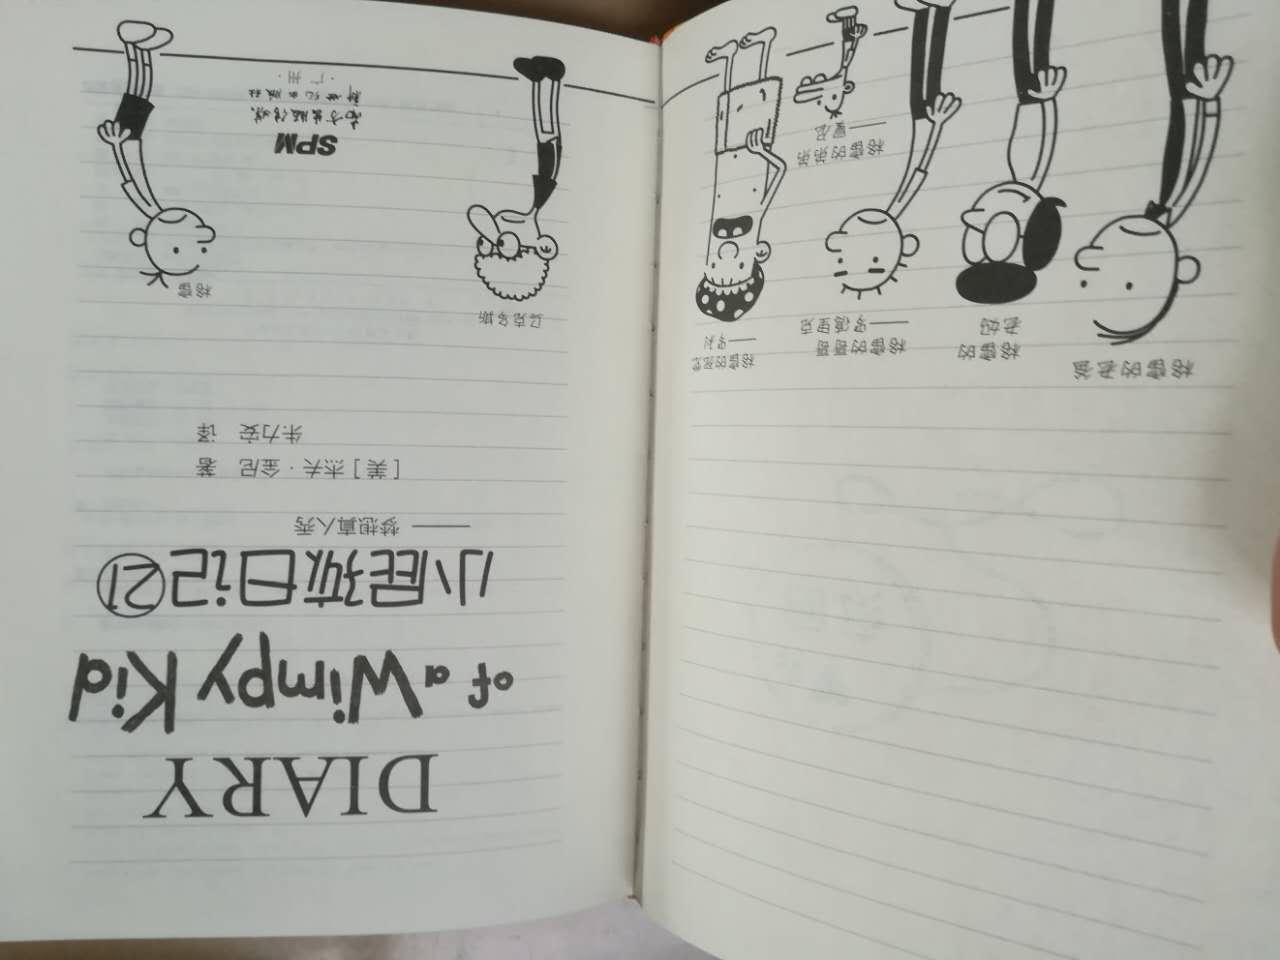 格雷的老爸
格雷的
老妈
格雷的哥哥
——罗德里克
格雷的死党
——罗利
格雷的弟弟
——曼尼
DIARY
of a Wimpy Kid
小屁孩日记㉑
——梦想真人秀
[美] 杰夫·金尼 著
朱力安 译
马克多斯
格雷
SPM
南方出版传媒
新世纪出版社
·广州·